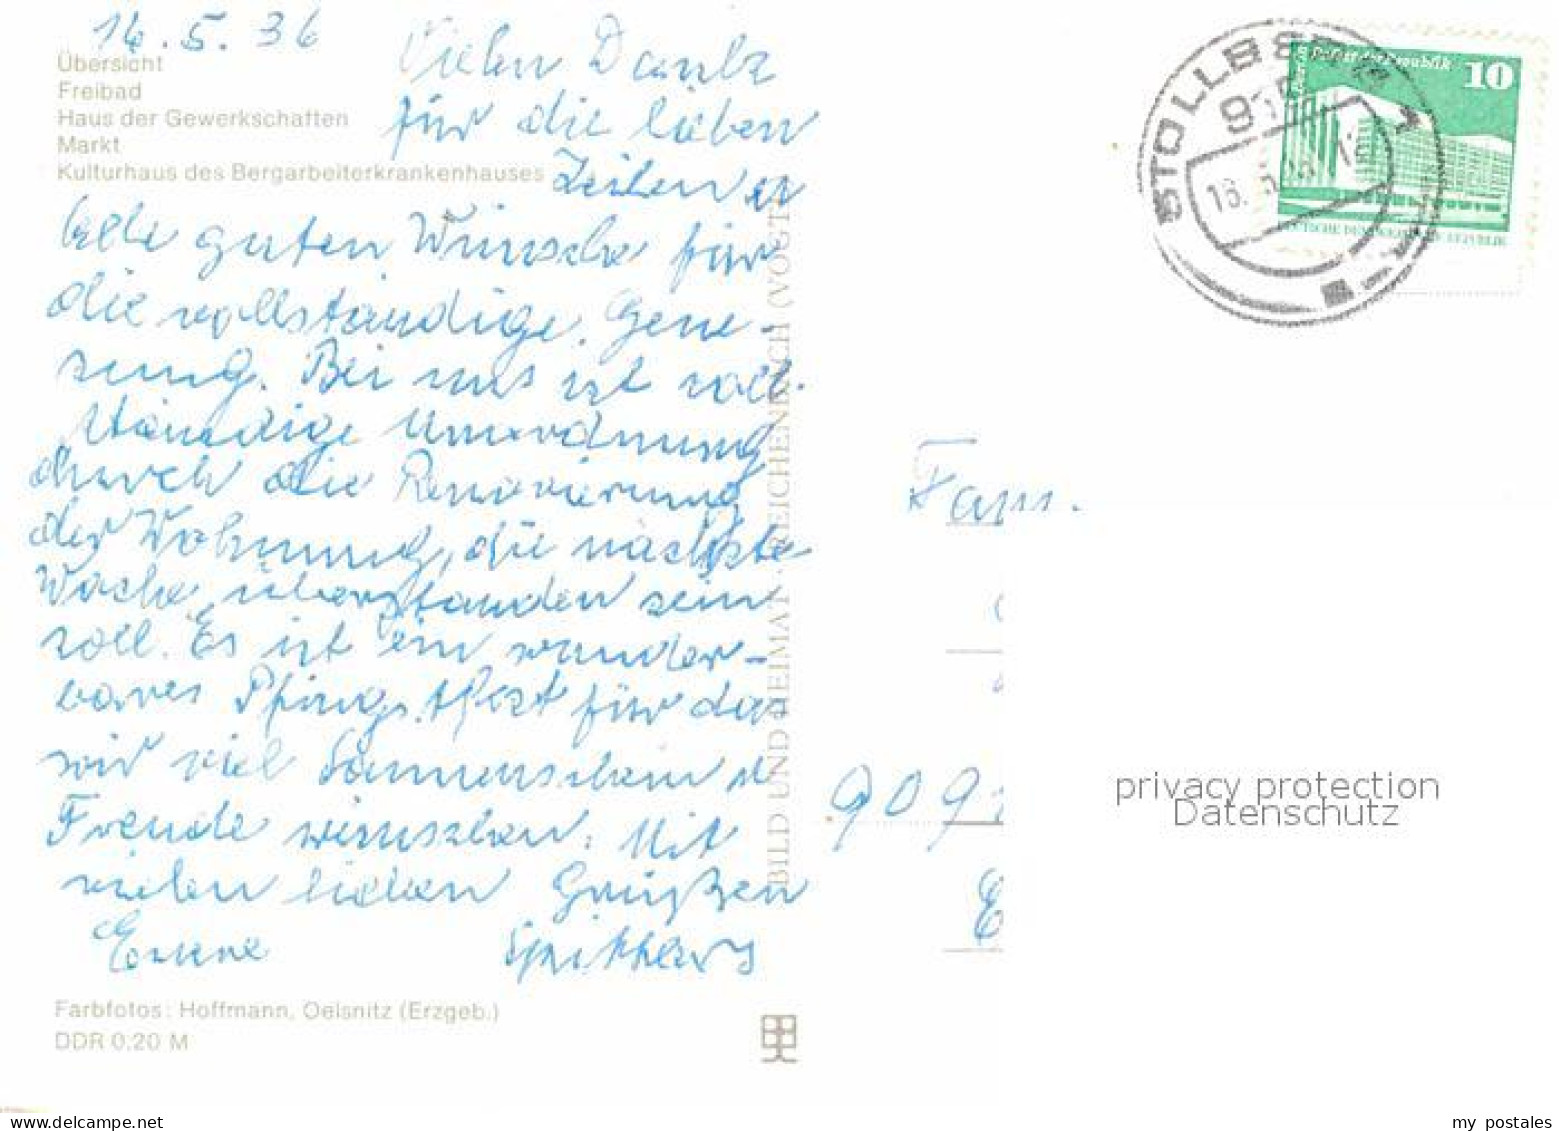 16.5.86
Übersicht
Freibad
Haus der Gewerkschaften
Markt
Kulturhaus des Bergarbeiterkrankenhauses
Vielen Dank
für die lieben
Zeilen u
alle guten Wünsche für
die vollständige Gene-
sung. Bei uns ist voll-
ständige Unordnung
durch die Renovierung
der Wohnung, die nächste
Woche überstanden sein
soll. Es ist ein wunder-
bares Pfingstfest für das
wir viel Sonnenschein u
Freude wünschen. Mit
vielen lieben Grüßen
Eure
Farbfotos: Hoffmann, Oelsnitz (Erzgeb.)
DDR 0,20 M
BILD UND HEIMAT REICHENBACH (VOGTL
STOLLBERG 1
10
DEUTSCHE DEMOKRATISCHE REPUBLIK
Fam.
909
privacy protection
Datenschutz
my postales